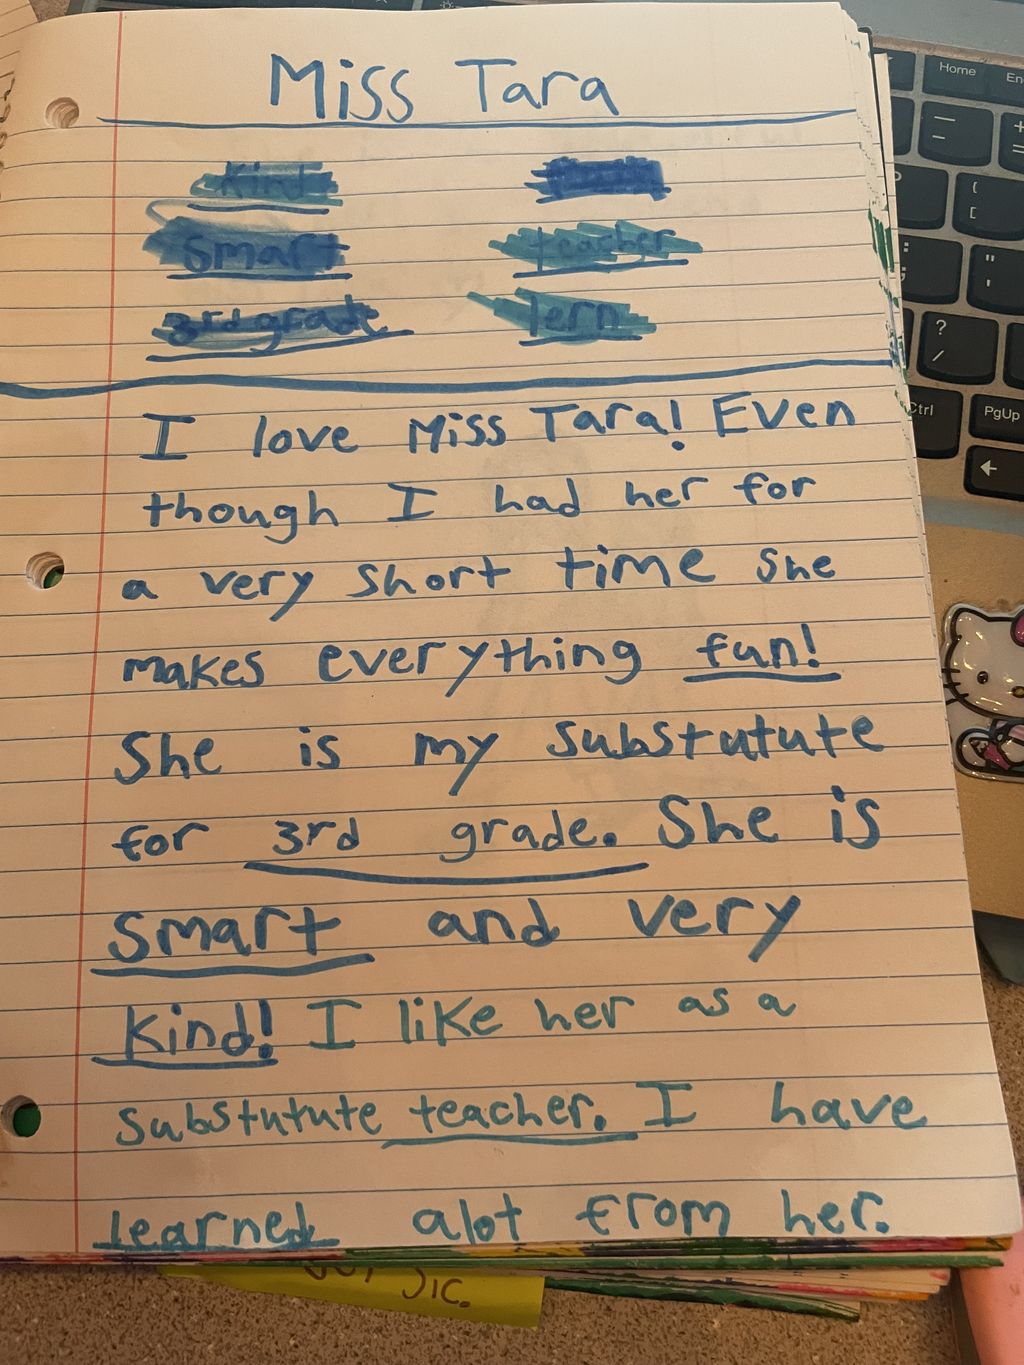 Miss Tara
kind
smart teacher
3rd grade lern
I love Miss Tara! Even
though I had her for
a very short time she
makes everything fun!
She is my substutute
for 3rd grade. She is
smart and very
kind! I like her as a
substutute teacher. I have
learned alot from her.
Home
PgUp